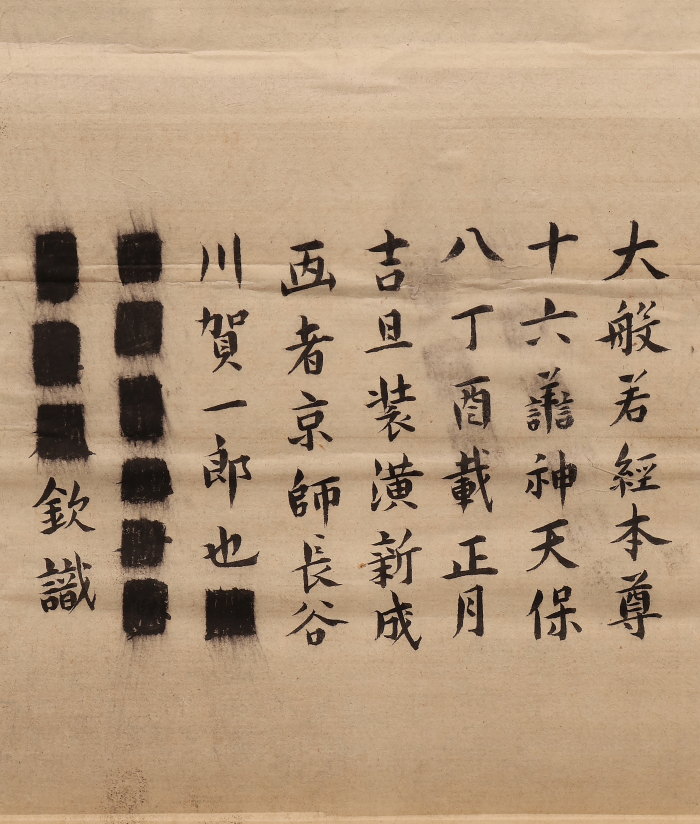 大般若經本尊
十六譱神天保
八丁酉載正月
吉旦装潢新成
画者京師長谷
川賀一郎也
欽識